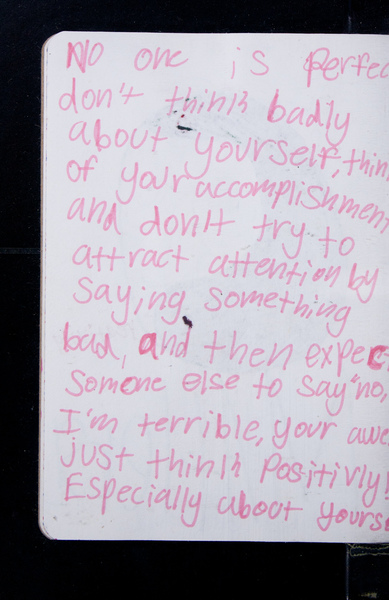 No one is perfec
don't think badly
about yourself, thin
of your accomplishment
and don't try to
attract attention by
saying something
bad, and then expec
someone else to say "no,
I'm terrible, your awe
just think positivly!
Especially about yours